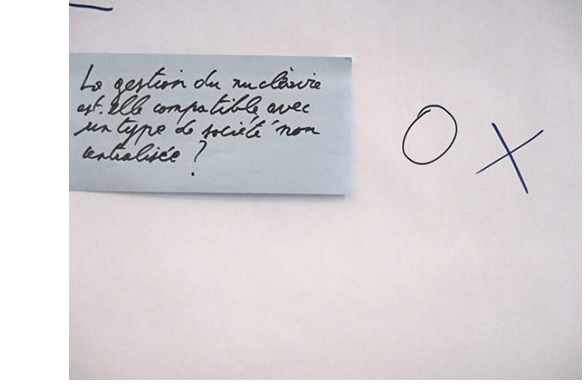 La gestion du nucléaire
est-elle compatible avec
un type de société non
centralisée ?
O X